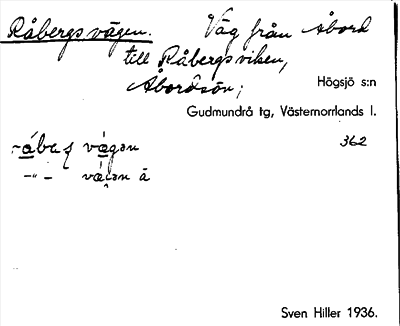 Råbergsvägen. Väg från Åbord
till Råbergsviken,
Åbordsön; Högsjö s:n
Gudmundrå tg, Västernorrlands l.
362
vägən
-"-
Sven Hiller 1936.